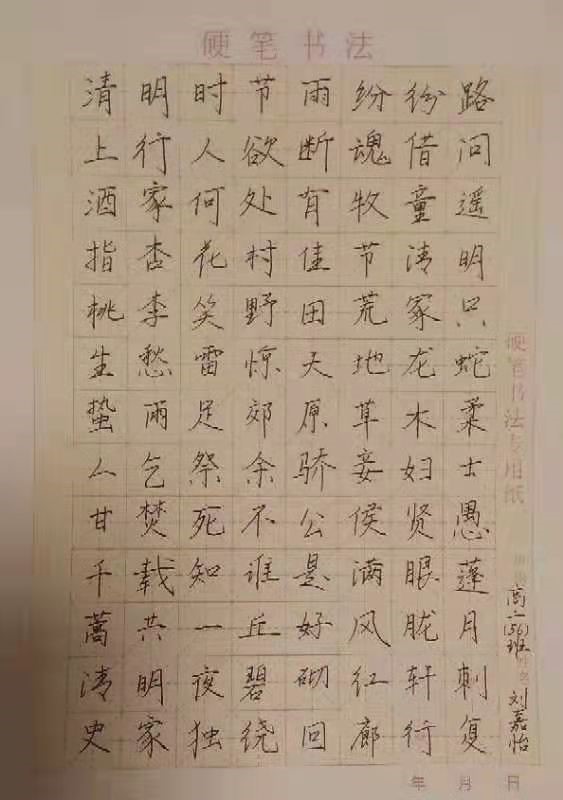 硬笔书法
清明时节雨纷纷路
上行人欲断魂借问
酒家何处有牧童遥
指杏花村佳节清明
桃李笑野田荒冢只
生愁雷惊天地龙蛇
蛰雨足郊原草木柔
人乞祭余骄妾妇士
甘焚死不公侯贤愚
千载知谁是满眼蓬
蒿共一丘好风胧月
清明夜碧砌红轩刺
史家独绕回廊行复
硬笔书法专用纸
高二(56)班
刘嘉怡
年 月 日